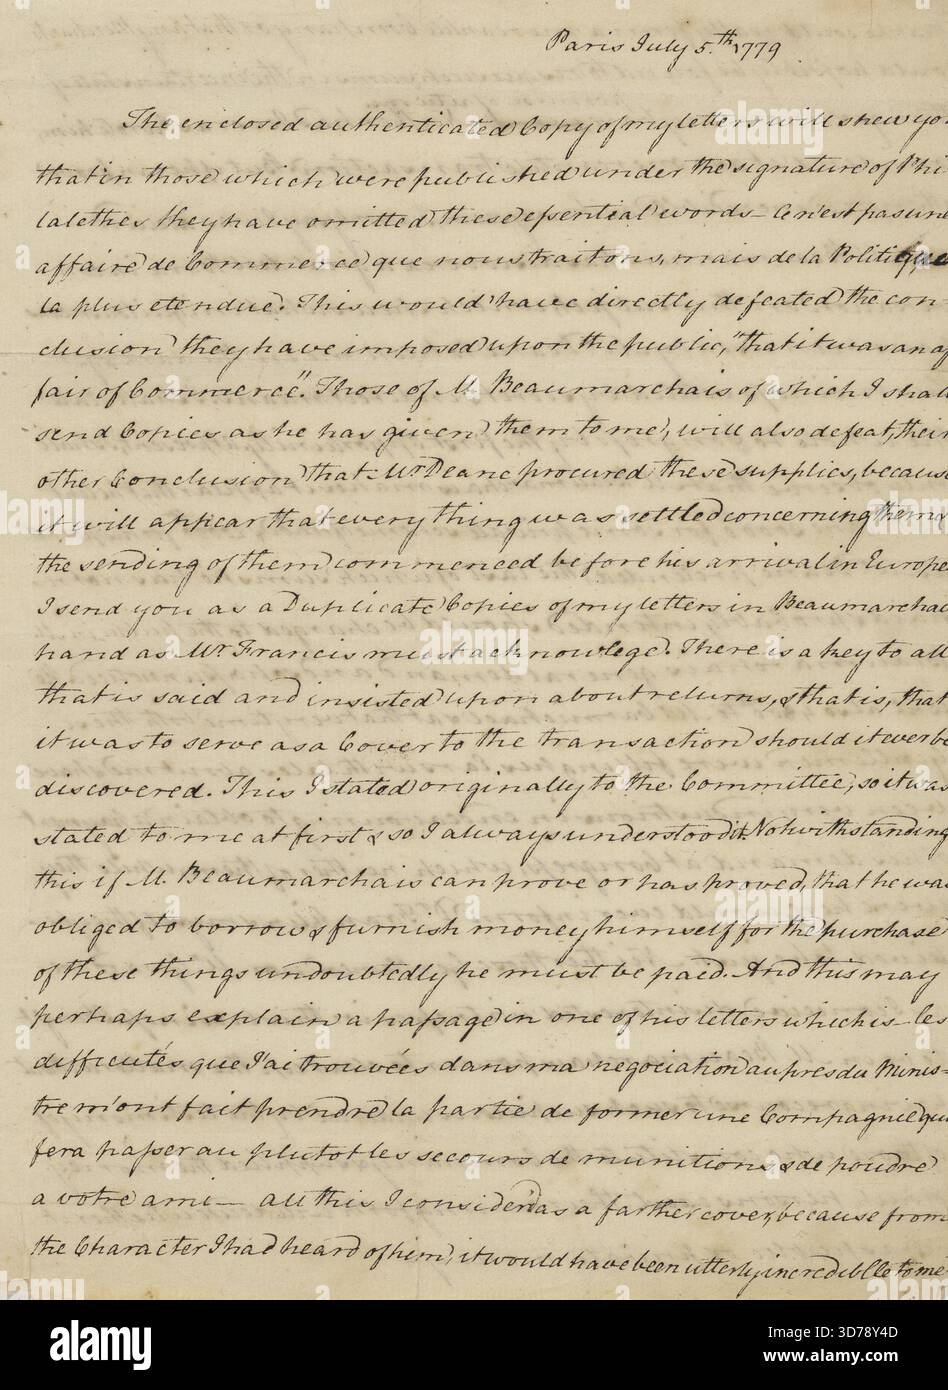 Paris July 5.th 1779
The enclosed authenticated Copy of my letters will shew yo
that in those which were published under the signature of Phi
lalethes they have omitted these essential words — Ce n'est pas une
affaire de Commerce que nous traitons, mais de la Politique
la plus etendue. This would have directly defeated the con-
clusion they have imposed upon the public, "that it was an af
fair of Commerce". Those of M. Beaumarchais of which I shall
send Copies as he has given them to me, will also defeat, their
other Conclusion that Mr Deane procured these supplies, because
it will appear that every thing was settled concerning them &
the sending of them commenced before his arrival in Europe
I send you as a Duplicate Copies of my letters in Beaumarchai
hand as Mr. Francis must acknowlege. There is a key to all
that is said and insisted upon about returns, & that is, that
it was to serve as a Cover to the transaction should it ever be
discovered. This I stated originally to the Committee, so it was
stated to me at first & so I always understood it. Notwithstanding
this if M. Beaumarchais can prove or has proved, that he was
obliged to borrow & furnish money himself for the purchase
of these things undoubtedly he must be paid. And this may
perhaps explain a passage in one of his letters which is — les
difficutés que J'ai trouvées dans ma negociation aupres du Minis-
tre m'ont fait prendre la partie de former une Compagnie qui
fera passer au plutot les secours de munitions & de poudre
a votre ami — all this I consider'd as a farther cover, because from
the Character I had heard of him, it would have been utterly incredible to me
alamy
Image ID: 3D78Y4D
www.alamy.com